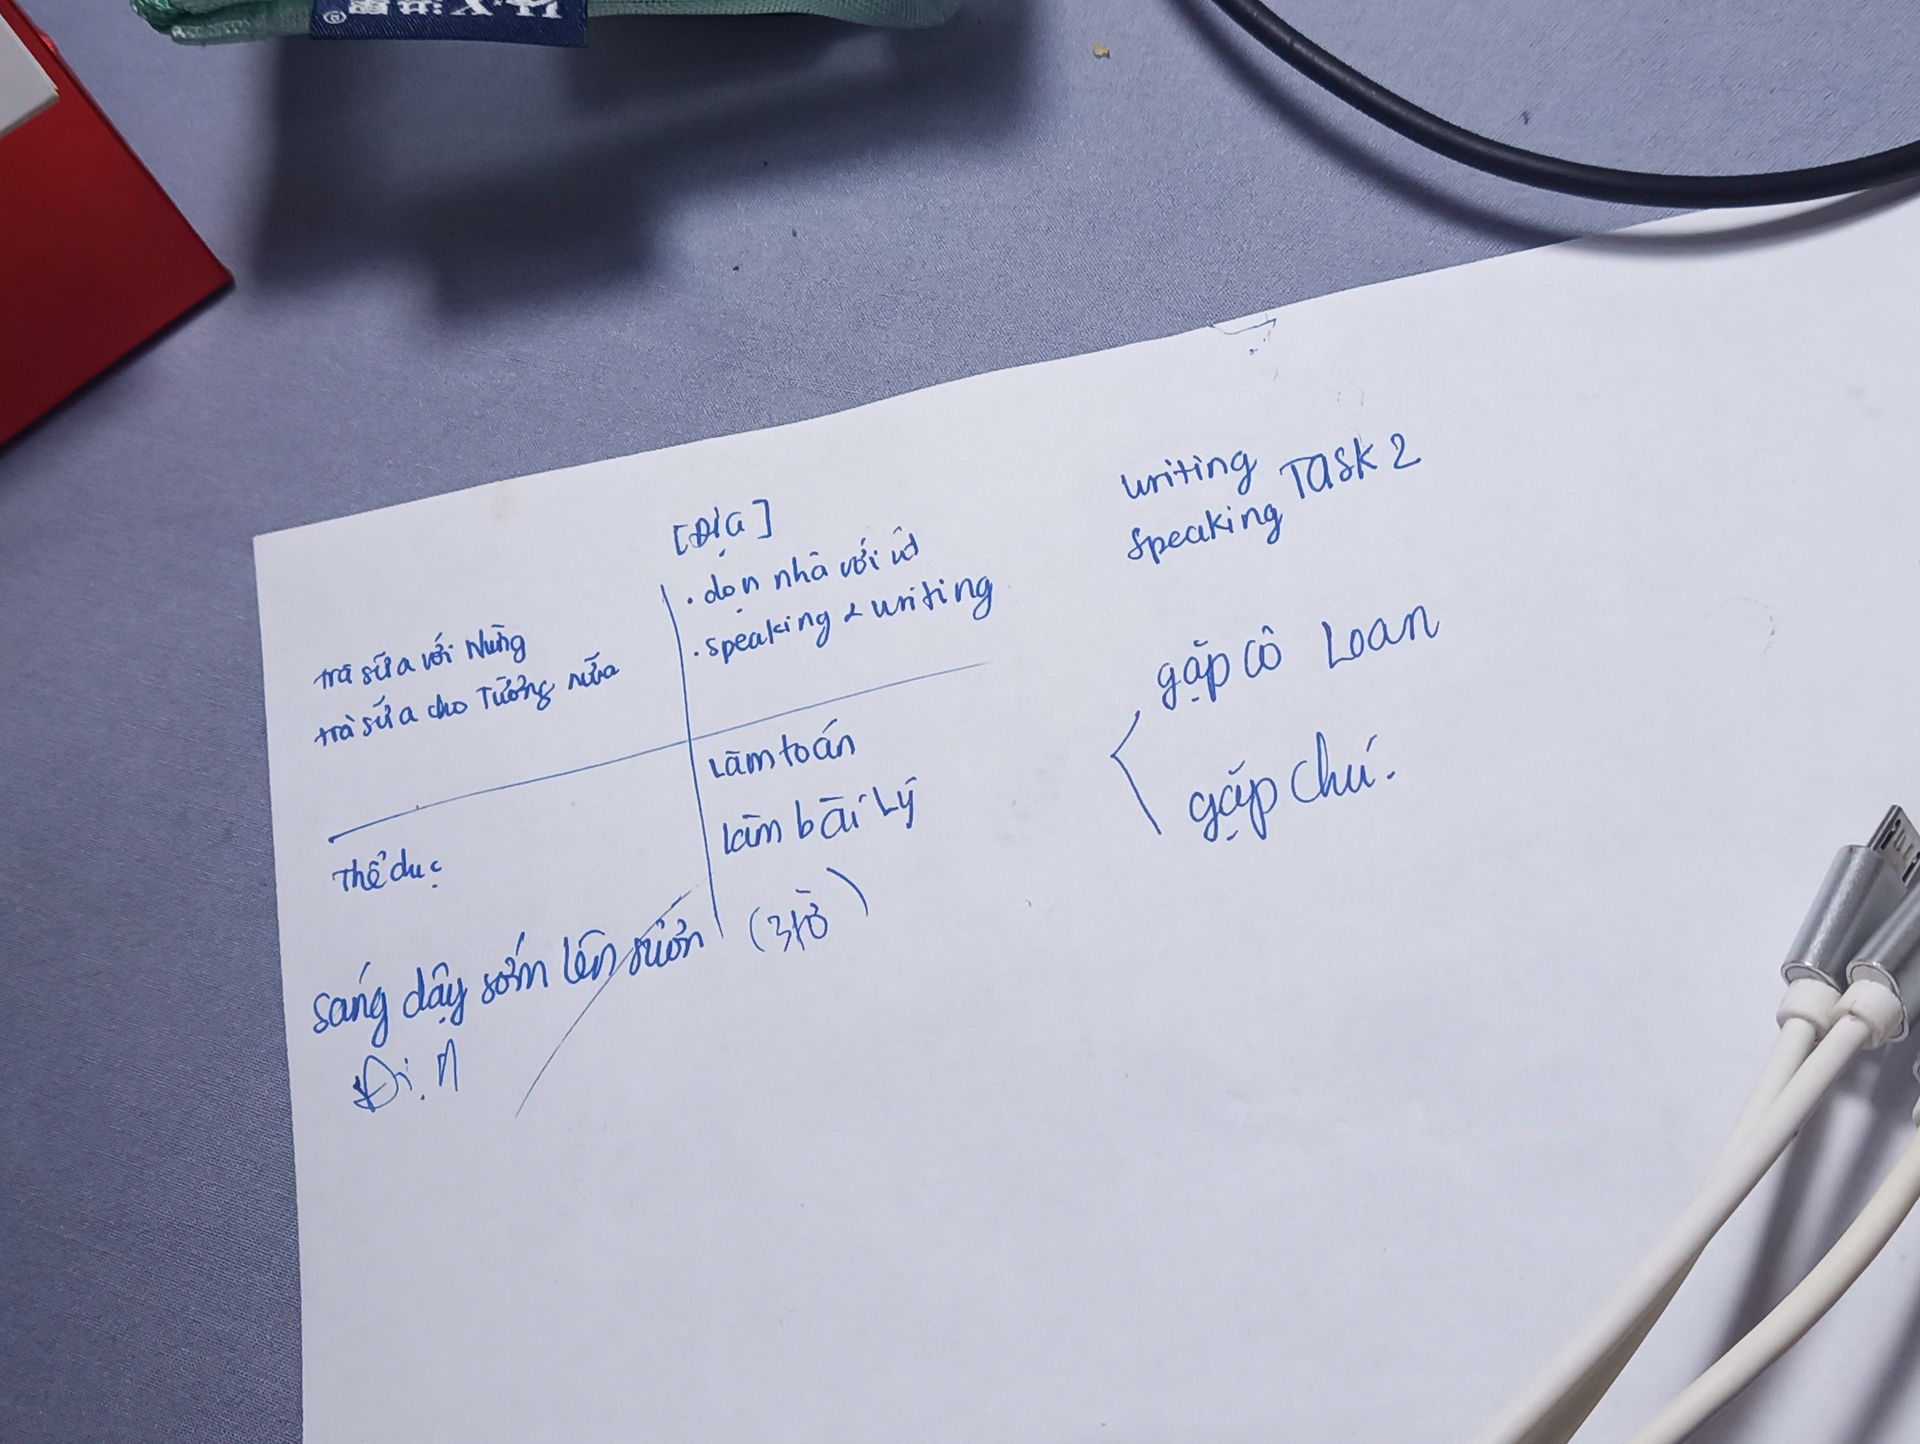 [Địa]
· dọn nhà với út
· speaking & writing
trà sữa với Nưng
trà sữa cho Tưởng nữa
làm toán
làm bài Lý
Thể dục
(3tờ)
sáng dậy sớm lên sườn
writing
speaking TASK 2
gặp cô Loan
gặp chú.